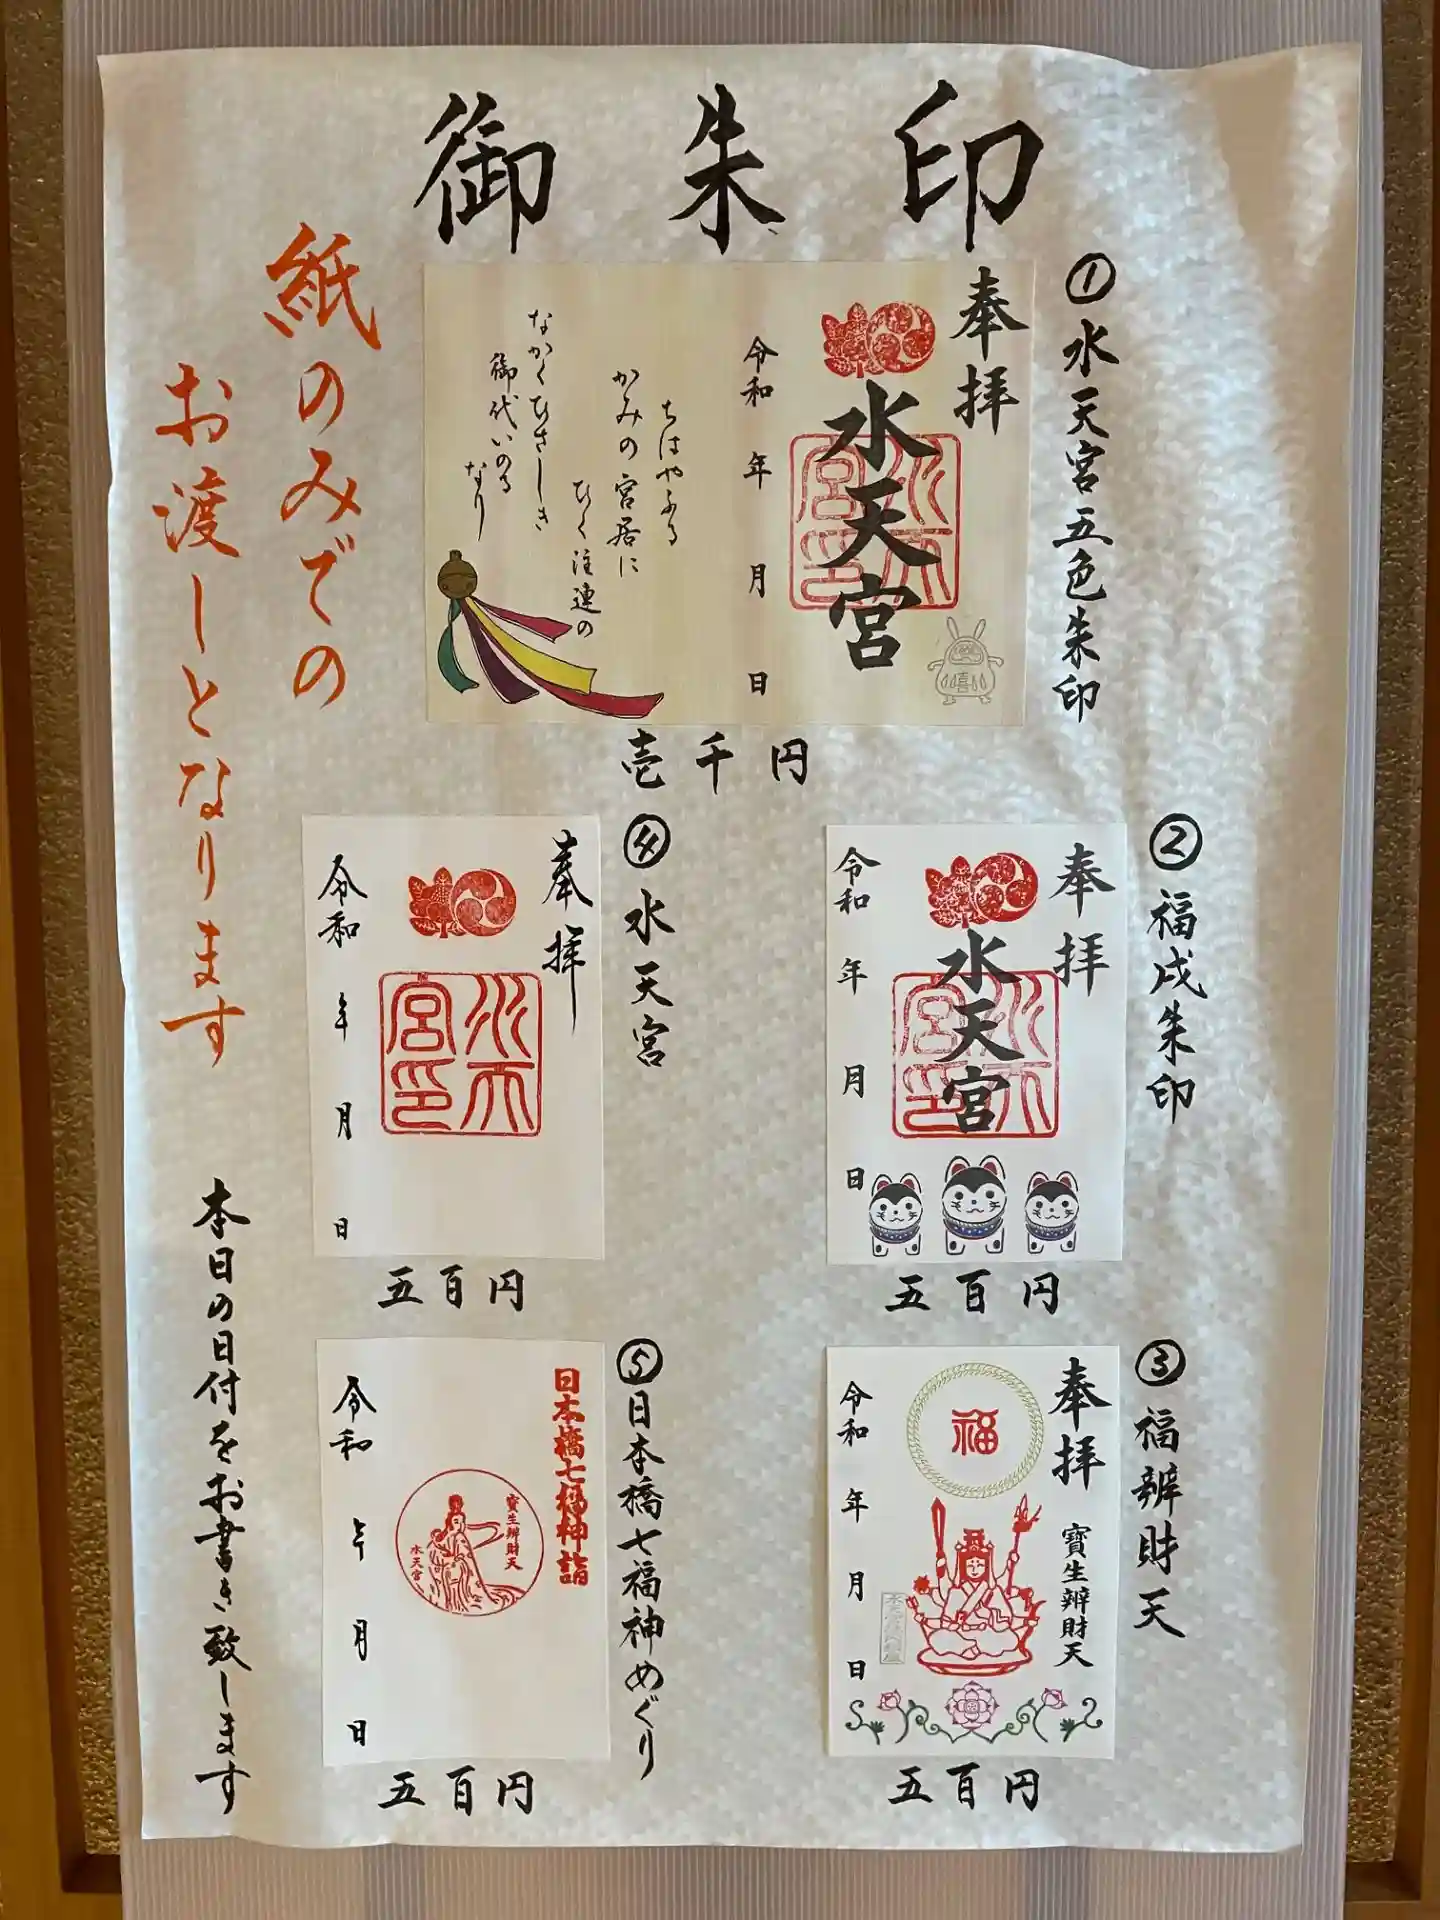 御朱印
①水天宮五色朱印
奉拝
水天宮
水天宮印
令和 年 月 日
ちはやふる
かみの宮居に
ひく注連の
なかくひさしき
御代いのる
なり
壱千円
②福戌朱印
奉拝
水天宮
水天宮印
令和 年 月 日
五百円
③福辨財天
奉拝
福
寶生辨財天
令和 年 月 日
五百円
④水天宮
奉拝
水天宮印
令和 年 月 日
五百円
⑤日本橋七福神めぐり
日本橋七福神詣
寶生辨財天
水天宮
令和 年 月 日
五百円
紙のみでの
お渡しとなります
本日の日付をお書き致します